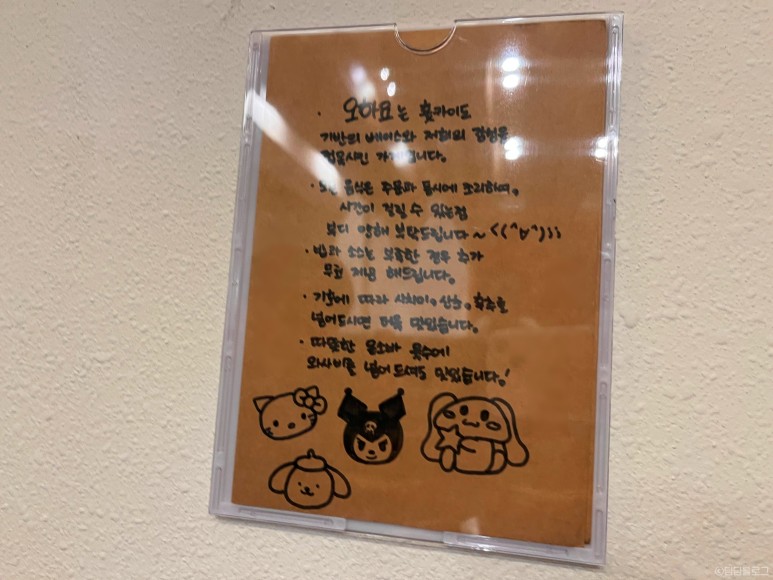 · 오하요는 홋카이도
기반의 베이스와 저희의 감성을
접목시킨 가게입니다.
· 모든 음식은 주문과 동시에 조리하여,
시간이 걸릴 수 있는점
부디 양해 부탁드립니다 ~ <(^∀^)>>
· 밥과 소스는 부족한 경우 추가
무료 제공 해드립니다.
· 기호에 따라 시치미, 산초, 후추를
넣어드시면 더욱 맛있습니다.
· 따뜻한 온소바 육수에
와사비를 넣어 드셔도 맛있습니다!